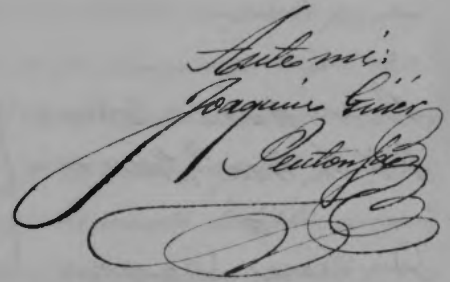 Ante mí:
Joaquín Giner